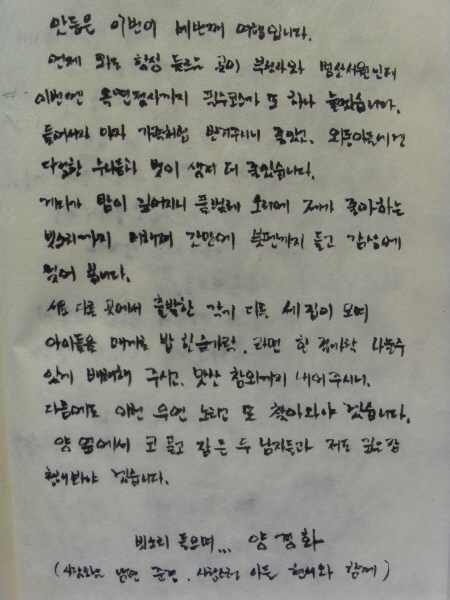 안동은 이번이 네번째 여행입니다.
언제 와도 항상 들르는 곳이 부석사와 병산서원인데
이번엔 옥연정사까지 필수코스가 또 하나 늘었습니다.
들어서자 마자 가족처럼 반겨주시니 좋았고, 외동아들에겐
다정한 누나들과 벗이 생겨 더 좋았습니다.
게다가 밤이 깊어지니 풀벌레 소리에 제가 좋아하는
빗소리까지 더해져 간만에 붓펜까지 들고 감상에
젖어 봅니다.
서로 다른 곳에서 출발한 각기 다른 세 집이 모여
아이들을 매개로 밥 한숟가락, 라면 한 젓가락 나눌수
있게 배려해 주시고, 맛난 참외까지 내어 주시니,
다음에도 이번 우연 노리고 또 찾아와야 겠습니다.
양 옆에서 코 골고 자는 두 남자들과 저도 잠을
청해봐야 겠습니다.
빗소리 들으며... 양경화
( 남편 준경, 사랑스런 아들 현서와 함께 )